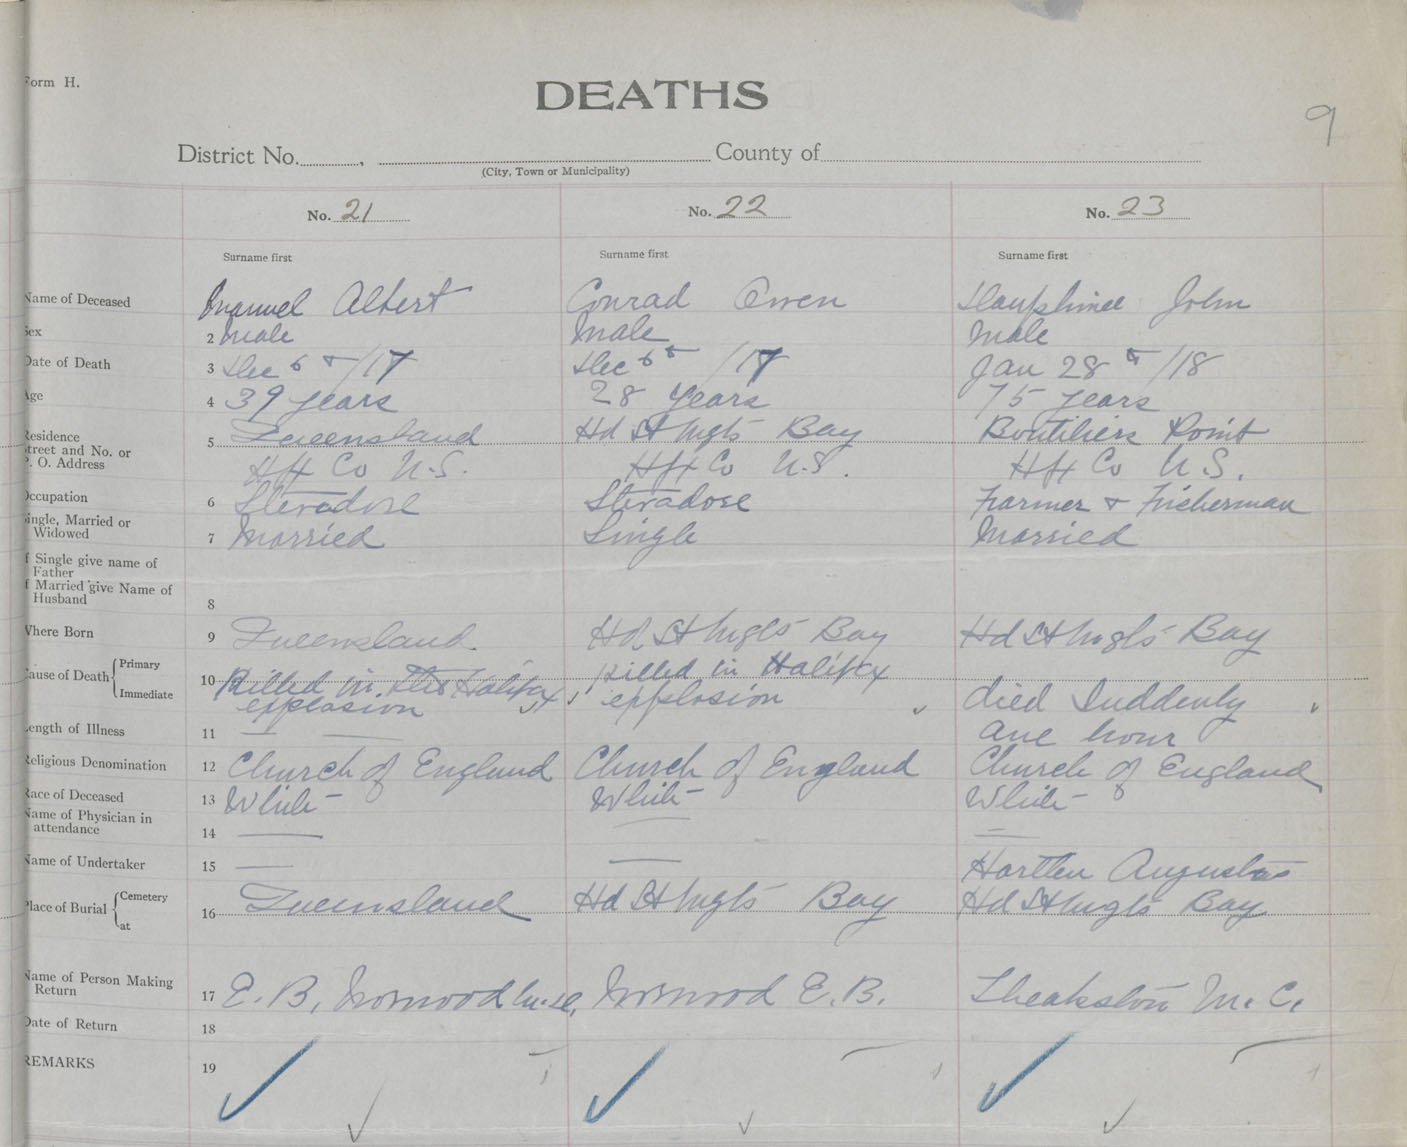 Form H.
DEATHS
9
District No. , County of
(City, Town or Municipality)
No. 21 No. 22 No. 23
Surname first Surname first Surname first
Name of Deceased Albert Conrad Owen Dauphinee John
Sex 2 Male Male Male
Date of Death 3 Dec 6th/17 Dec 6th /17 Jan 28th/18
Age 4 39 years 28 years 75 years
Residence 5 Queensland Hd St Mgts Bay Boutiliers Point
Street and No. or
P. O. Address Hfx Co N.S. Hfx Co N.S. Hfx Co N.S.
Occupation 6 Stevadose Stevadose Farmer & Fisherman
Single, Married or
Widowed 7 Married Single Married
If Single give name of
Father
If Married give Name of
Husband 8
Where Born 9 Queensland Hd St Mgts Bay Hd St Mgts Bay
Cause of Death Primary 10 Killed in the Halifax Killed in Halifax
Immediate explosion explosion died Suddenly
Length of Illness 11 — — one hour
Religious Denomination 12 Church of England Church of England Church of England
Race of Deceased 13 White White White
Name of Physician in
attendance 14 — — —
Name of Undertaker 15 — — Hartlen Augustus
Place of Burial Cemetery 16 Queensland Hd St Mgts Bay Hd St Mgts Bay
at
Name of Person Making
Return 17 E. B. Norwood Norwood E. B. Theakston M. C.
Date of Return 18
REMARKS 19